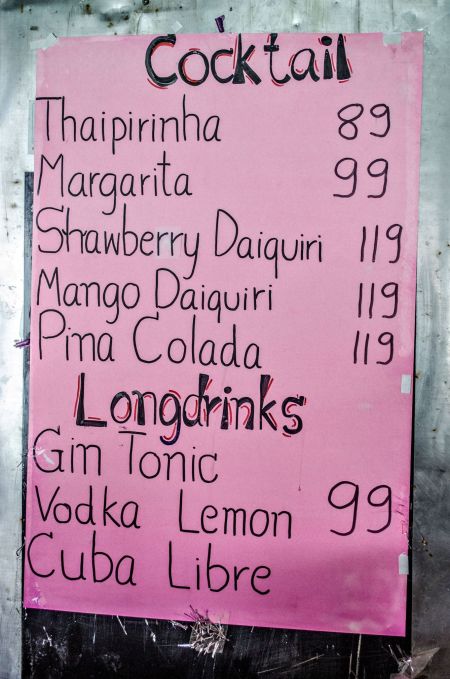 Cocktail
Thaipirinha 89
Margarita 99
Shawberry Daiquiri 119
Mango Daiquiri 119
Pina Colada 119
Longdrinks
Gin Tonic
Vodka Lemon 99
Cuba Libre